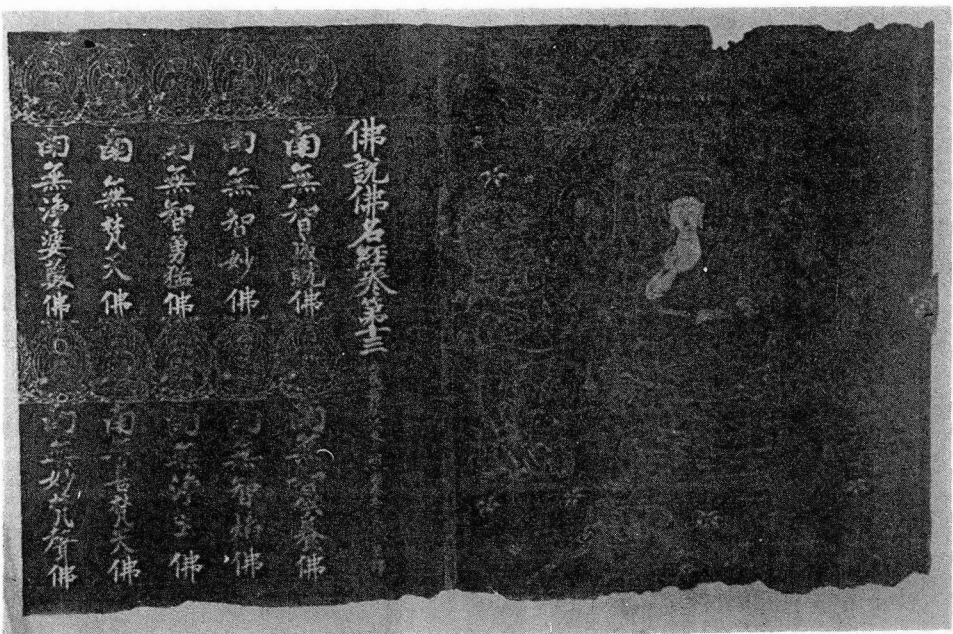 佛說佛名經卷第十三
南無智　　佛
南無智　養佛
南無智妙佛
南無智　佛
南無智勇猛佛
南無淨　佛
南無梵天佛
南無善梵天佛
南無淨婆藪佛
南無妙梵聲佛